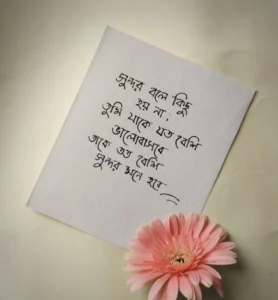 সুন্দর বলে কিছু
হয় না,
তুমি যাকে যত বেশি
ভালোবাসবে
তাকে তত বেশি
সুন্দর মনে হবে